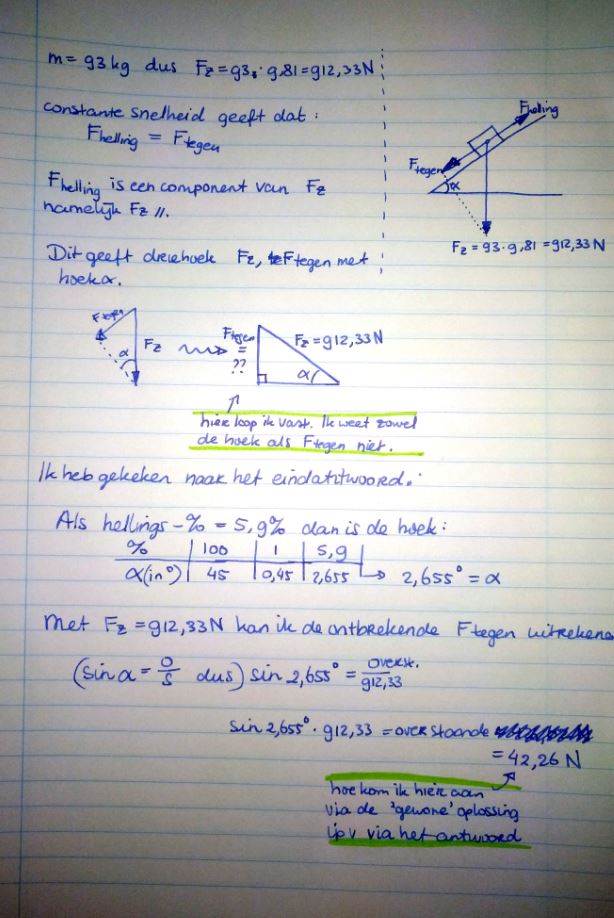 m = 93 kg dus Fz = 93 · 9,81 = 912,33 N
constante snelheid geeft dat :
Fhelling = Ftegen
Fhelling is een component van Fz
namelijk Fz //.
Dit geeft driehoek Fz, Ftegen met
hoek α.
Fhelling
Ftegen
α
Fz = 93 · 9,81 = 912,33 N
Ftegen
α
Fz
Ftegen
=
??
Fz = 912,33 N
α
hier loop ik vast. Ik weet zowel
de hoek als Ftegen niet.
Ik heb gekeken naar het eindantwoord.
Als hellings-% = 5,9% dan is de hoek :
% | 100 | 1 | 5,9
α (in °) | 45 | 0,45 | 2,655 → 2,655° = α
Met Fz = 912,33 N kan ik de ontbrekende Ftegen uitrekene
(sin α = O/S dus) sin 2,655° = overst./912,33
sin 2,655° · 912,33 = overstaande
= 42,26 N
hoe kom ik hier aan
via de 'gewone' oplossing
ipv via het antwoord